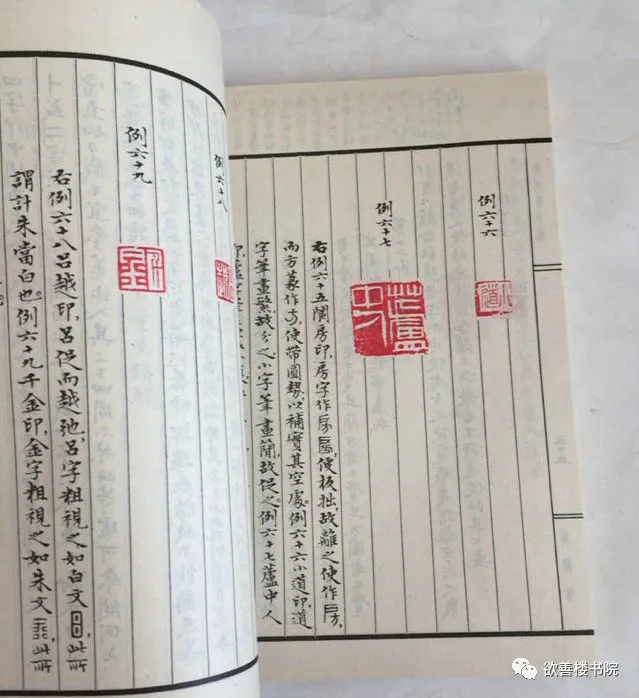 例六十六
小道
例六十七
蘆中人
右例六十五関房印,房字作使板拙,故離之使作
而方篆作使帶圓趨,以補實其空處。例六十六小道印,道
字筆畫繁,故分之,小字筆畫簡,故促之。例六十七蘆中人
例六十八
例六十九
千金
右例六十八呂越印,呂促而越弛,呂字粗視之如白文此所
謂計朱當白也。例六十九千金印,金字粗視之如朱文此所
欲善楼书院